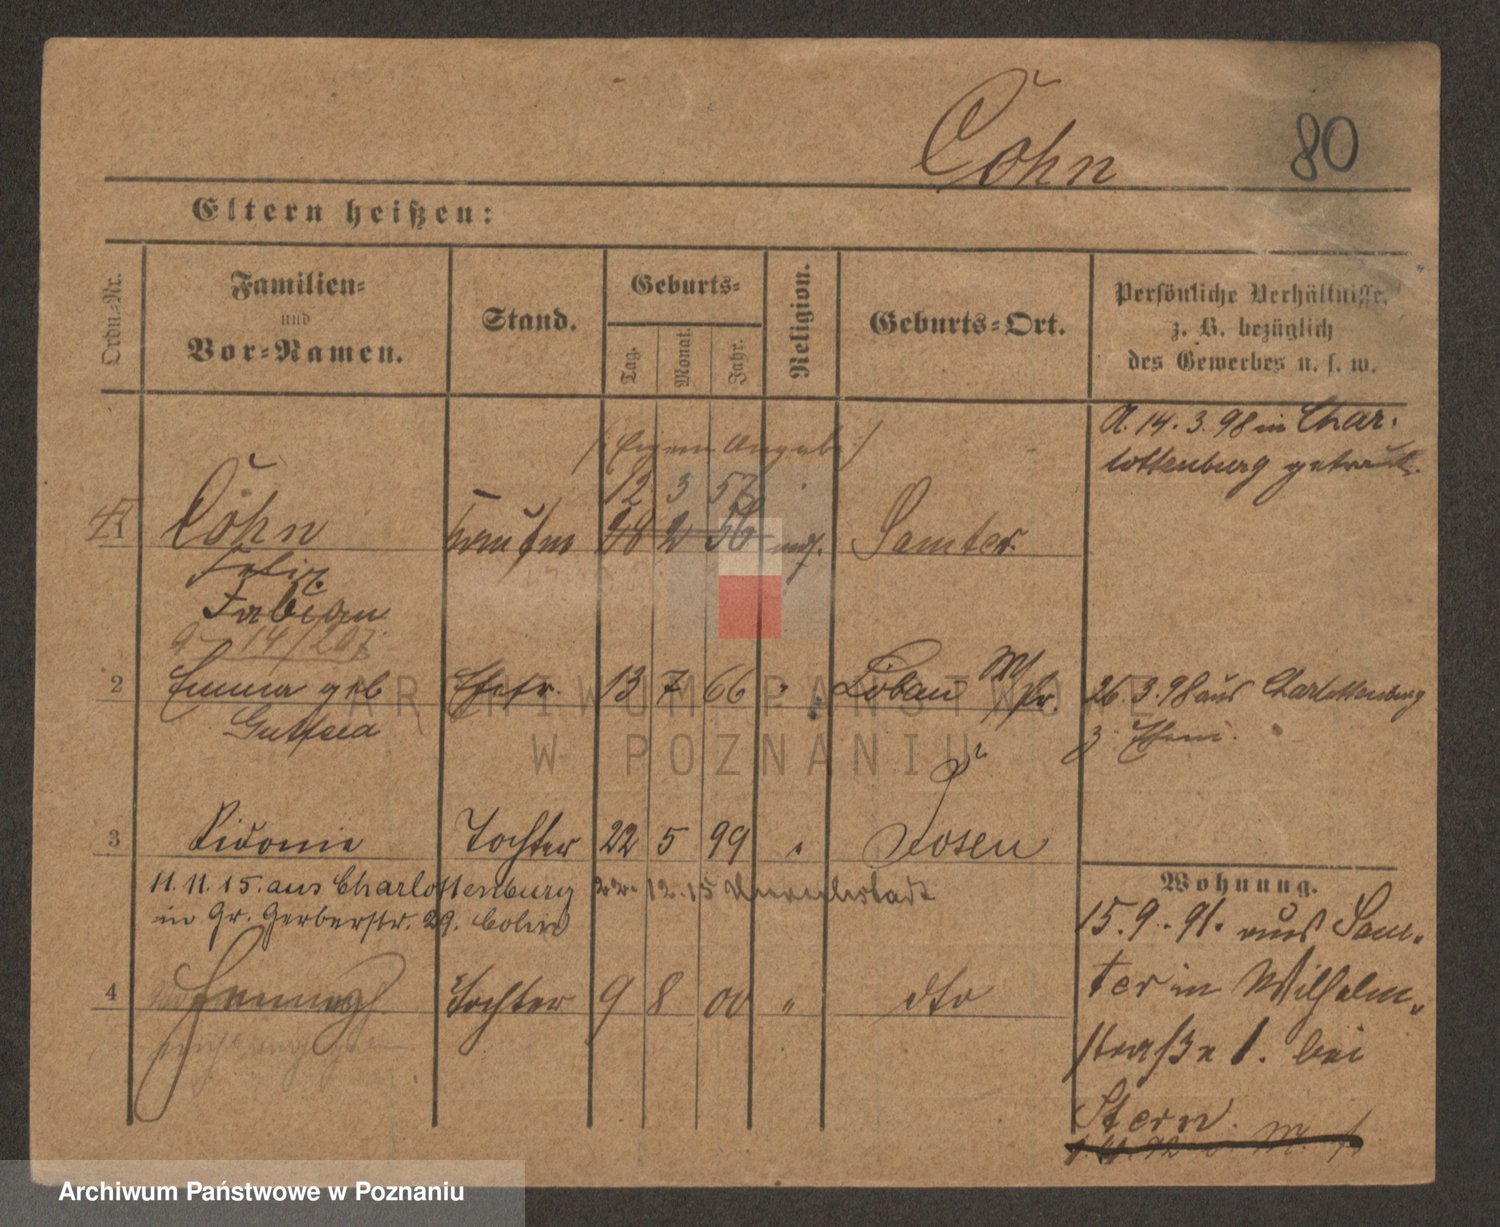 Cohn
80
Eltern heißen:
Ordn.-Nr.
Familien-
und
Vor-Namen.
Stand.
Geburts-
Tag.
Monat.
Jahr.
Religion.
Geburts-Ort.
Persönliche Verhältnisse,
z. B. bezüglich
des Gewerbes u. s. w.
A. 14. 3. 98 in Char-
lottenburg getraut.
(Eigene Angabe)
12 3 57
Cohn Kaufm 28 2 56 mos. Samter
Felix
Fabian
14/207
2 Emma geb Ehefr. 13 7 66 " Löbau W/Pr. 26. 3. 98 aus Charlottenburg
z. Ehem.
3 Sidonie Tochter 22 5 99 " Posen
11. 11. 15. aus Charlottenburg 12. 15
in Gr. Gerberstr. 29. Cohn
Wohnung.
15. 9. 91. aus Sam-
ter in Wilhelm-
straße 1. bei
Stern.
4 Tochter 9 8 00 " dto
ARCHIWUM PAŃSTWOWE
W POZNANIU
Archiwum Państwowe w Poznaniu